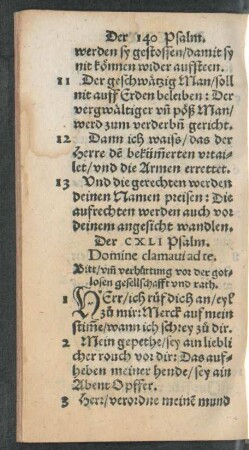 Der 140 Psalm.
werden sy gestossen/damit sy
nit können wider aufsteen.
11 Der geschwätzig Man/soll
nit auff Erden beleiben: Der
vergwältiger vñ pöß Man/
werd zum verderbñ gericht.
12 Dann ich waiß/das der
Herre dē bekümerten vrtai-
let/vnd die Armen errettet.
13 Vnd die gerechten werden
deinen Namen preisen: Die
aufrechten werden auch vor
deinem angesicht wandlen.
Der CXLI Psalm.
Domine clamaui ad te.
Bitt/vm̃ verhüttung vor der got-
losen gesellschafft vnd rath.
1 HErr/ich rüf dich an/eyl
zů mir: Merck auf mein
stim̃e/wann ich schrey zů dir.
2 Mein gepethe/sey ain lieblı-
cher rouch vor dir: Das auf-
heben meiner hende/sey ain
Abent Opffer.
3 Herr/verordne meinē mund